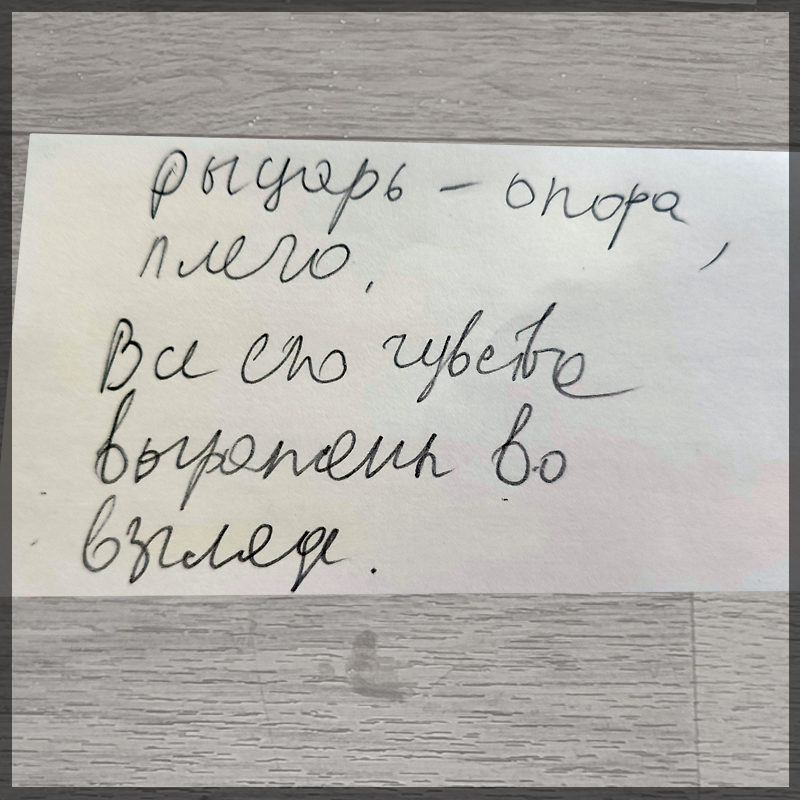 рыцарь - опора,
плечо.
Все его чувства
выражены во
взгляде.